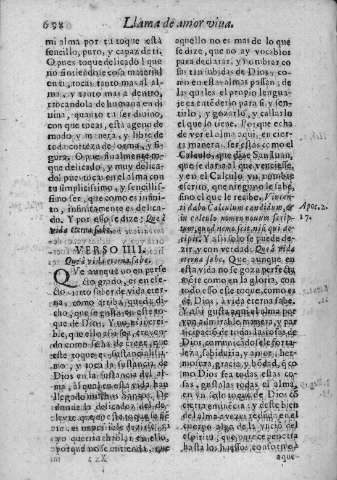 698
Llama de amor viva.
mi alma por tu toque está
sencillo, puro, y capaz de ti.
O pues toque delicado! que
no sintiendose cosa material
en ti, tocas tanto mas al al-
ma, y tanto mas a dentro,
trocandola de humana en di
uina, quanto tu ser divino,
con que tocas, està ageno de
modo, y manera, y libre de
toda corteza de forma, y fi-
gura. O que finalmente to-
que delicado, y muy delica-
do! pues tocas en el alma con
tu simplicissimo, y sencillissi-
mo ser, que como es infini-
to, infinitamente es delica-
do. Y por esso se dize: Que à
vida eterna sabe.
VERSO IIII.
Que à vida eterna sabe.
Que aunque no en perfe
cto grado, es en efe-
cto cierto sabor de vida eter-
na, como arriba queda di-
cho, que se gusta en este to-
que de Dios. Y no es increi-
ble, que ello sea assi, creyen-
do como se ha de creer, que
este toque es sustancialissi-
mo, y toca la sustancia de
Dios en la sustancia del al-
ma, al qual en esta vida han
llegado muchos Santos. De
donde la delicadez del de-
leyte, que en esto se siente, es
imposible dezirse: ni
yo querria hablar en ello,
porque no se entienda, que
aquello no es mas de lo que
se dize, que no ay vocablos
para declarar, y nombrar co
sas tan subidas de Dios, co-
mo en estas almas passan; de
las quales el proprio lengua-
je es entenderlo para si, y sen-
tirlo, y gozarlo, y callarlo
el que lo tiene. Porque echa
de ver el alma aqui, en cier-
ta manera, ser estas cosas como el
Calculo, que dize San Iuan,
que se daria al que venciesse,
y en el Calculo vn nombre
escrito, que ninguno le sabe,
sino el que le recibe. Vincen-
ti dabo Calculum candidum, &
in calculo nomen novum scrip-
tum, quod nemo scit, nisi qui ac-
cipit. Y assi solo se puede de-
zir, y con verdad: Que à vida
eterna sabe. Que, aunque en
esta vida no se goza perfecta
mente como en la gloria, con
todo esso este toque, como es
de Dios, à vida eterna sabe.
Y assi gusta aqui el alma por
vn admirable manera, y par
ticipacion de todas las cosas de
Dios, comunicandosele forta-
leza, sabiduria, y amor, her-
mosura, gracia, y bondad, &c.
Como Dios sea todas estas co-
sas, gustalas todas el alma
en vn solo toque de Dios có
cierta eminencia; y deste bien
del alma a vezes redunda en
el cuerpo algo de la vncion del
espiritu, que parece penetra
hasta los huessos, conforme a
aque-
Apoc. 2.
17.